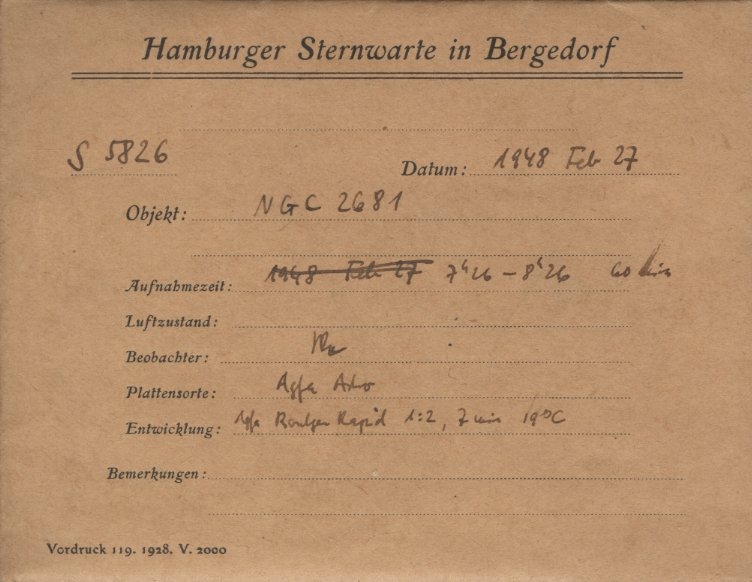 Hamburger Sternwarte in Bergedorf
S 5826
Datum: 1948 Feb 27
Objekt: NGC 2681
Aufnahmezeit: 1948 Feb 27 7ʰ26 – 8ʰ26 60 min
Luftzustand:
Beobachter:
Plattensorte: Agfa Astro
Entwicklung: Agfa Röntgen Rapid 1:2, 7 min 19°C
Bemerkungen:
Vordruck 119. 1928. V. 2000